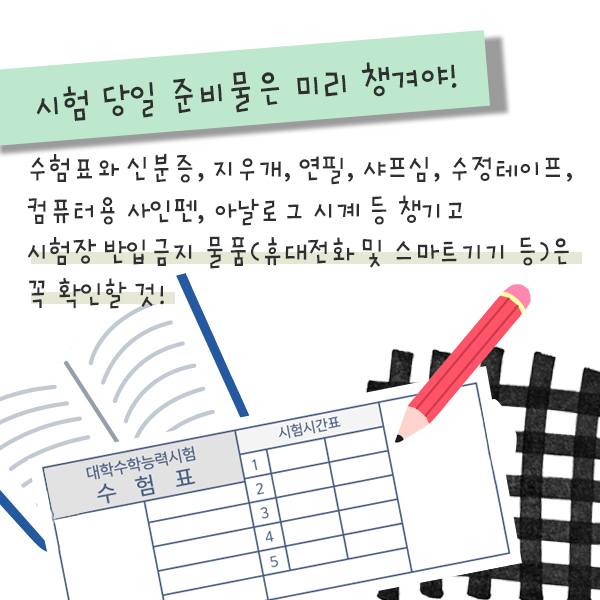 시험 당일 준비물은 미리 챙겨야!
수험표와 신분증, 지우개, 연필, 샤프심, 수정테이프,
컴퓨터용 사인펜, 아날로그 시계 등 챙기고
시험장 반입금지 물품(휴대전화 및 스마트기기 등)은
꼭 확인할 것!
대학수학능력시험
수 험 표
시험시간표
1
2
3
4
5